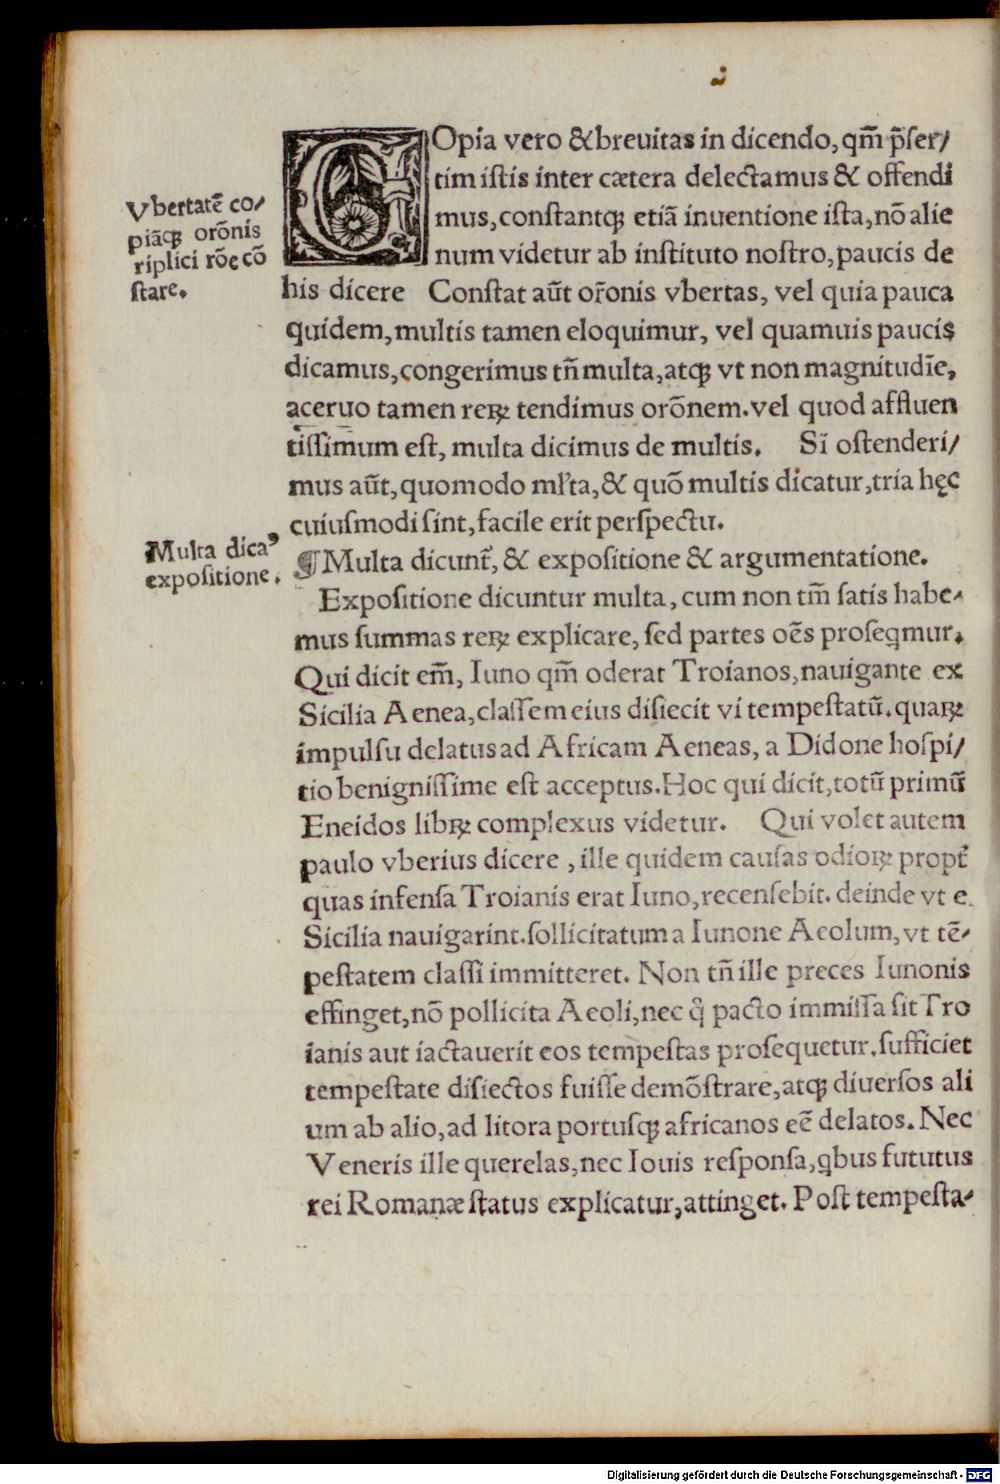 2
COpia vero & breuitas in dicendo, qm̃ p̃ser/
tim istis inter cætera delectamus & offendi
mus, constantqȝ etiã inuentione ista, nõ alie
num videtur ab instituto nostro, paucis de
his dicere Constat aũt or̃onis vbertas, vel quia pauca
quidem, multis tamen eloquimur, vel quamuis paucis
dicamus, congerimus tñ multa, atqȝ vt non magnitudĩe,
aceruo tamen reꝝ tendimus orõnem. vel quod affluen
tissimum est, multa dicimus de multis. Si ostenderi/
mus aũt, quomodo ml̃ta, & quõ multis dicatur, tria hęc
cuiusmodi sint, facile erit perspectu.
¶ Multa dicunt̃, & expositione & argumentatione.
Expositione dicuntur multa, cum non tm̃ satis habe-
mus summas reꝝ explicare, sed partes oẽs proseqmur.
Qui dicit em̃, Iuno qm̃ oderat Troianos, nauigante ex
Sicilia Aenea, classem eius disiecit vi tempestatũ. quaꝝ
impulsu delatus ad Africam Aeneas, a Didone hospi/
tio benignissime est acceptus. Hoc qui dicit, totũ primũ
Eneidos libꝝ complexus videtur. Qui volet autem
paulo vberius dicere, ille quidem causas odioꝝ propt̃
quas infensa Troianis erat Iuno, recensebit. deinde vt e
Sicilia nauigarint. sollicitatum a Iunone Aeolum, vt tẽ-
pestatem classi immitteret. Non tñ ille preces Iunonis
effinget, nõ pollicita Aeoli, nec q̃ pacto immissa sit Tro
ianis aut iactauerit eos tempestas prosequetur. sufficiet
tempestate disiectos fuisse demõstrare, atqȝ diuersos ali
um ab alio, ad litora portusqȝ africanos eẽ delatos. Nec
Veneris ille querelas, nec Iouis responsa, qbus fututus
rei Romanæ status explicatur, attinget. Post tempesta-
Vbertatẽ co/
piãqȝ orõnis
triplici rõe cõ
stare.
Multa dicaꝰ
expositione.
Digitalisierung gefördert durch die Deutsche Forschungsgemeinschaft - DFG